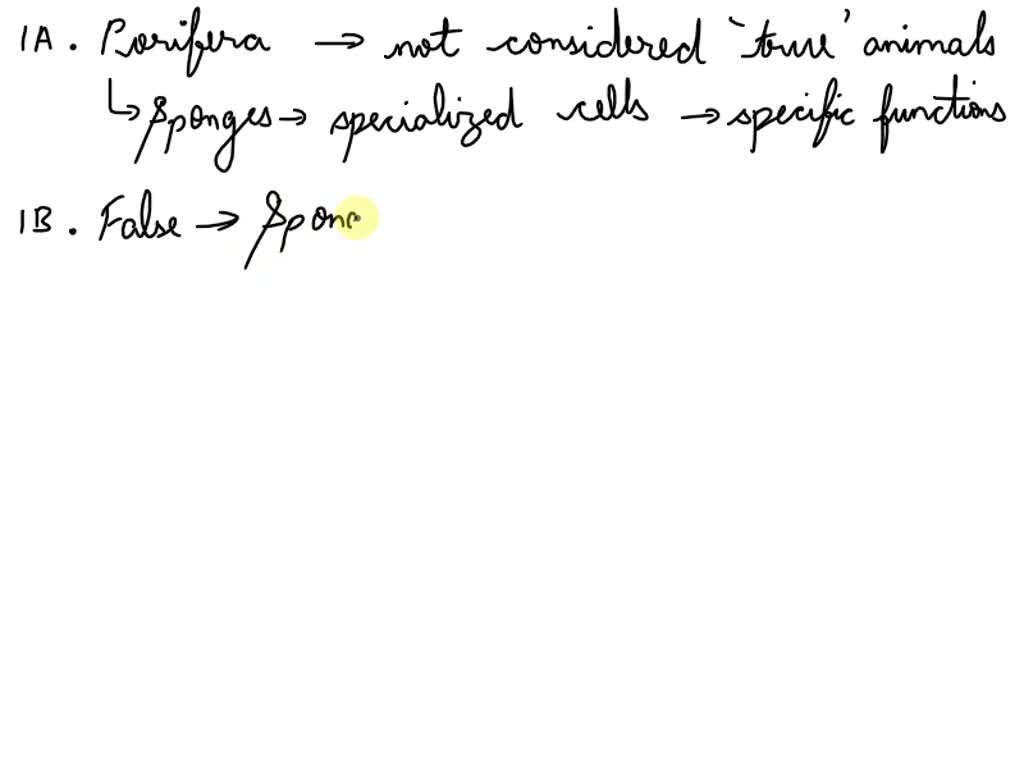 1A. Porifera → not considered 'true' animals
↳ Sponges → specialized cells → specific functions
1B. False → Spon